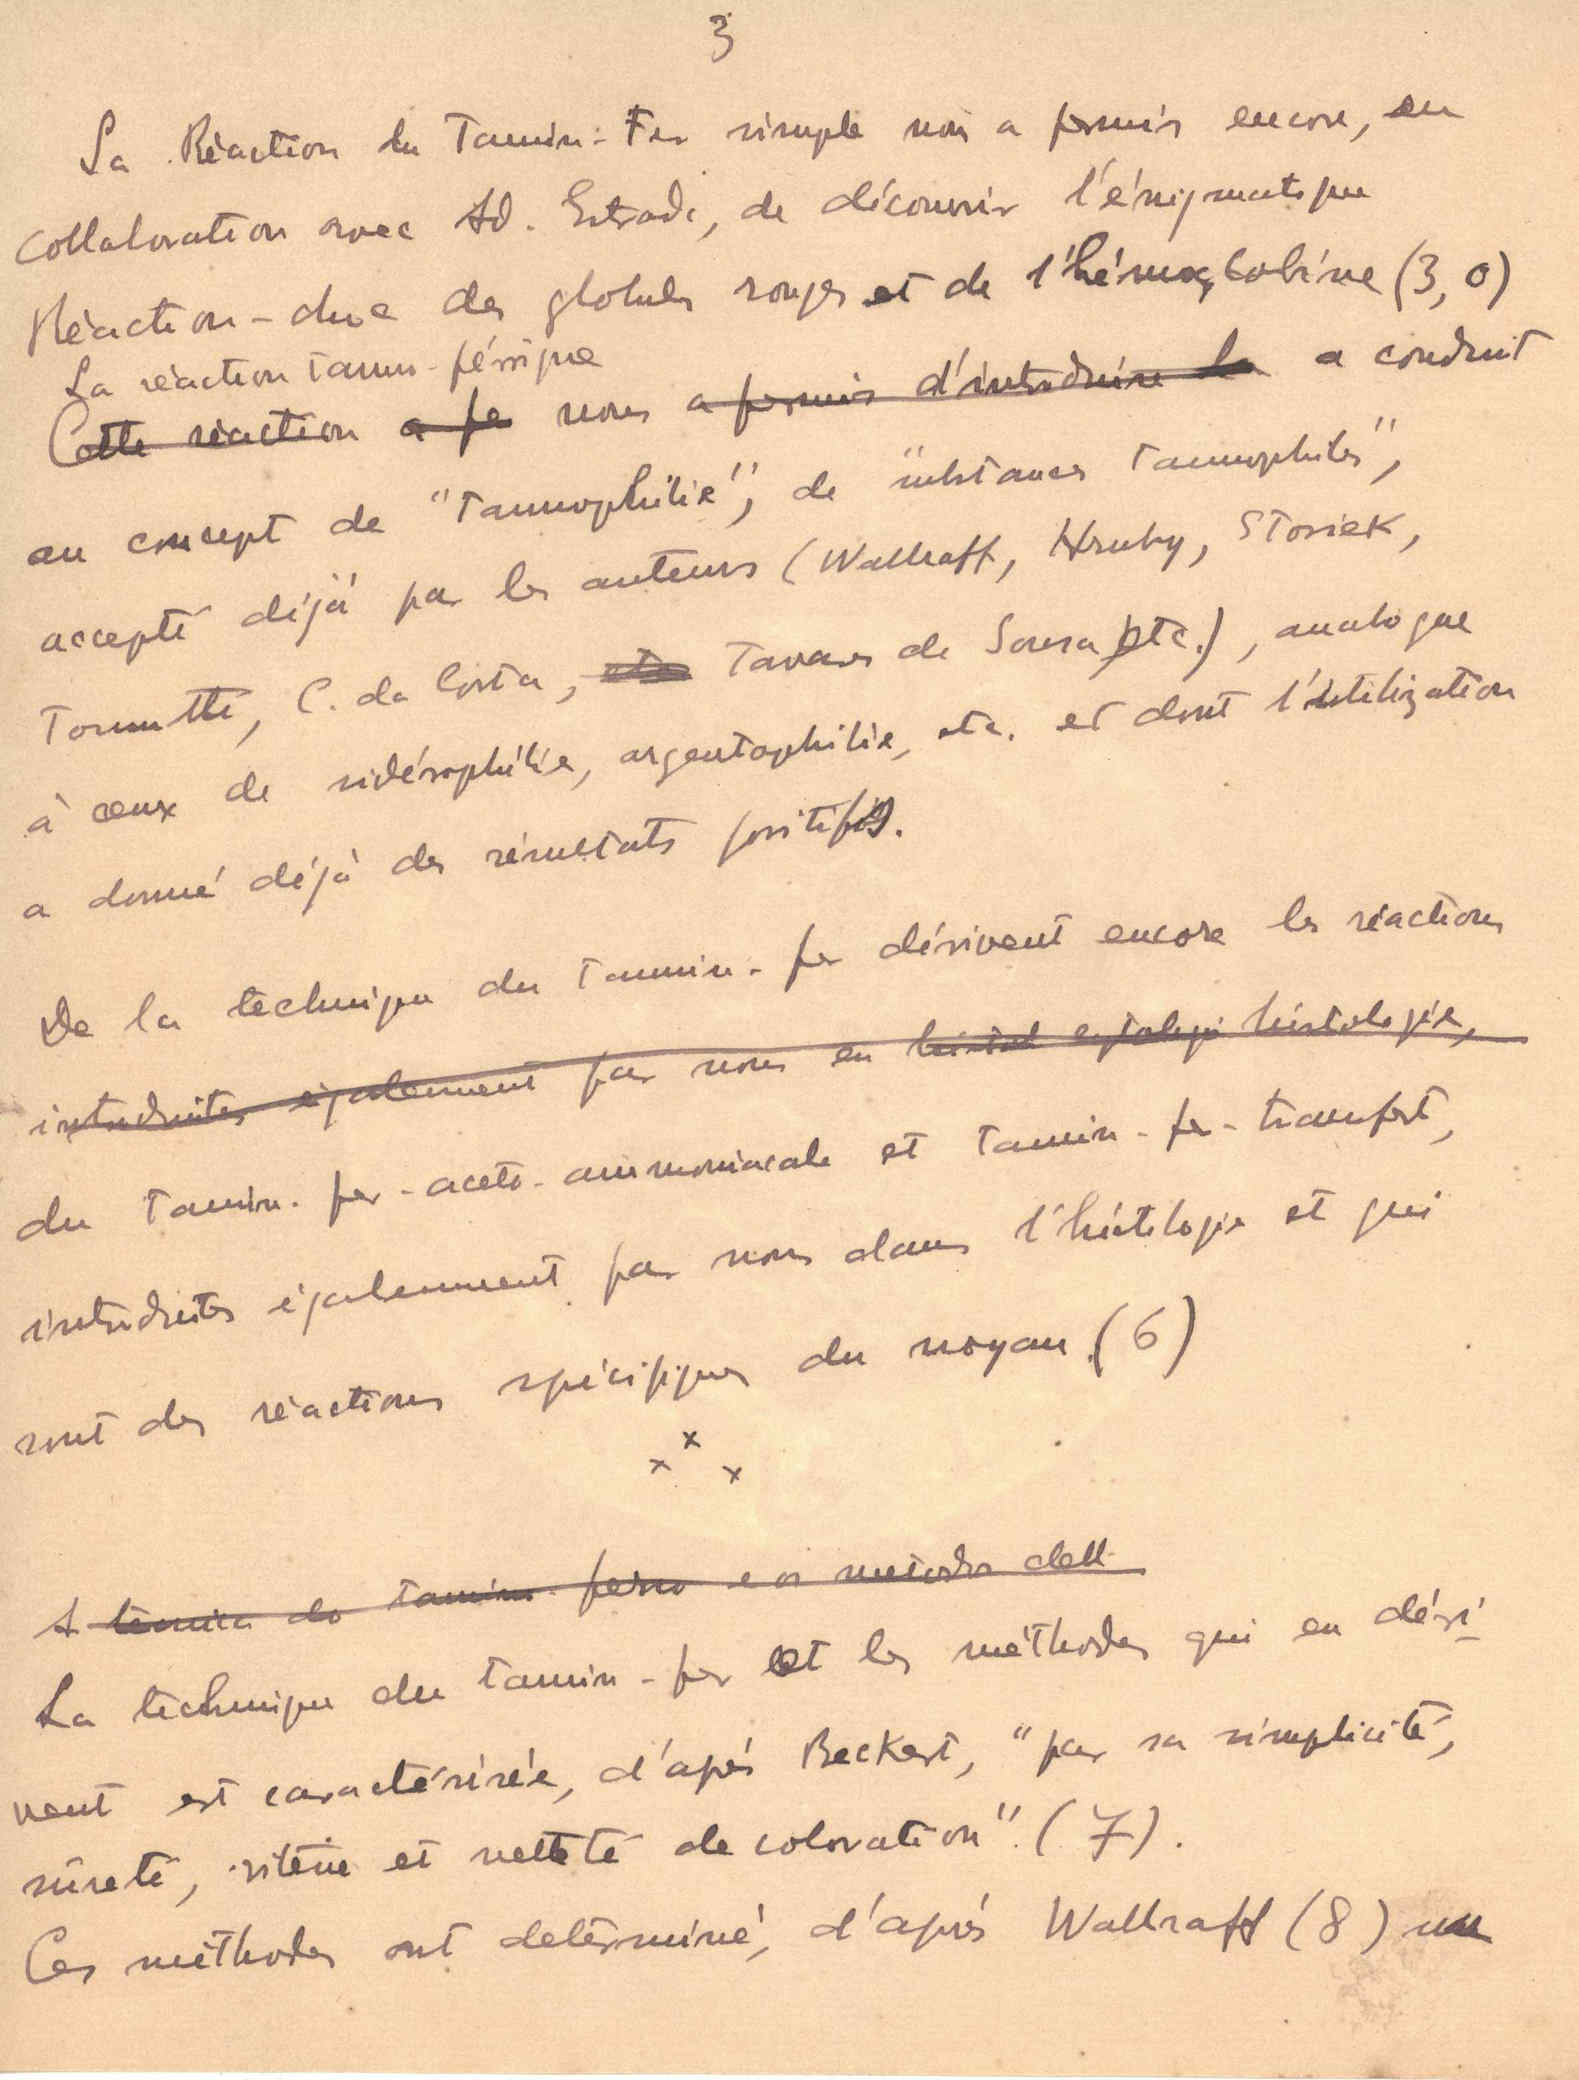 3
La Réaction du Tannin-Fer simple nous a permis encore, en
collaboration avec Ad. Estrada, de découvrir l'énigmatique
Réaction-duo des globules rouges et de l'hémoglobine (3, 0)
La réaction tanno-férrique
Cette réaction a pe nous a permis d'introduire la a conduit
au concept de "tannophilie", de "substances tannophiles",
accepté déjà par les auteurs (Wallraff, Hruby,
C. da Costa, etc Tavares de Sousa etc.), analogue
à ceux de sidérophilie, argentophilie, etc. et dont l'utilization
a donné déjà des résultats positifs.
De la technique du tannin-fer dérivent encore les réactions
introduites également par nous en histol cytologi histologie,
du tannin-fer-aceto-ammoniacale et tannin-fer-transfert,
introduites également par nous dans l'histologie et qui
sont des réactions spécifiques du noyau (6)
x x x
A técnica do tanino-ferro e os metodos
La technique du tannin-fer et les méthodes qui en déri-
vent est caractérisée, d'après Beckert, "par sa simplicité,
sûreté, et netteté de coloration" (7).
Ces méthodes ont determiné, d'après Wallraff (8) un